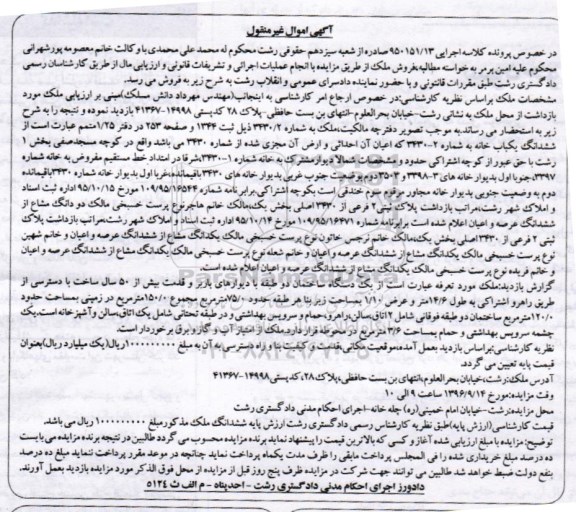 آگهی اموال غیرمنقول
در خصوص پرونده کلاسه اجرایی ۹۵۰۱۵۱/۱۳ صادره از شعبه سیزدهم حقوقی رشت محکوم له محمد علی محمدی با وکالت خانم معصومه پورشهرانی
محکوم علیه امین برمر به خواسته مطالبه،فروش ملک از طریق مزایده با انجام عملیات اجرائی و تشریفات قانونی و ارزیابی مال از طریق کارشناسان رسمی
دادگستری رشت طبق مقررات قانونی و با حضور نماینده دادسرای عمومی و انقلاب رشت به شرح زیر به فروش می رسد.
مشخصات ملک براساس نظریه کارشناسی:در خصوص ارجاع امر کارشناسی به اینجانب(مهندس مهرداد دانش مسلک)مبنی بر ارزیابی ملک مورد
بازداشت از محل ملک به نشانی رشت-خیابان بحرالعلوم-انتهای بن بست حافظی-پلاک ۲۸ کدپستی ۱۴۹۹۸-۴۱۳۶۷ بازدید نموده و نتیجه را به شرح
زیر به استحضار می رساند.به موجب تصویر دفترچه مالکیت،ملک به شماره ۳۴۳۰/۲ ذیل ثبت ۱۳۴۴ و صفحه ۲۵۳ در دفتر ۱/۲۵متمم عبارت است از
ششدانگ یکباب خانه به شماره ۲-۳۴۳۰ که اعیان آن احداثی و ارض آن مجزی شده از شماره ۳۴۳۰ می باشد واقع در کوچه مسجدصفی بخش ۱
رشت با حق عبور از کوچه اشتراکی حدود و مشخصات:شمالا دیواریست اشتراکی به خانه شماره ۱-۳۴۳۰شرقا در امتداد خط مستقیم مفروض به خانه شماره
۳۳۹۷،جنوبا اول بدیوار خانه های ۳-۳۳۹۸ و ۳۵۰۳ دوم برقسمت جنوب غربی بدیوار خانه های ۳۴۳۰ باقیمانده،غربا اول بدیوار خانه شماره ۳۴۳۰باقیمانده
دوم به وضعیت جنوبی بدیوار خانه مجاور مرقوم سوم مختلفی است بکوچه اشتراکی.برابر نامه شماره ۱۰۹/۹۵/۱۶۵۴۴ مورخ ۹۵/۱۰/۱۵ اداره ثبت اسناد
و املاک شهر رشت،مراتب بازداشت پلاک ثبتی۲ فرعی از ۳۴۳۰اصلی بخش یک،مالک خانم هاجرنوع پرست خسبخی مالک دو دانگ مشاع از
ششدانگ عرصه و اعیان اعلام شده است برابرنامه شماره ۱۰۹/۹۵/۱۶۴۷۱ مورخ ۹۵/۱۰/۱۴ اداره ثبت اسناد و املاک شهر رشت،مراتب بازداشت پلاک
ثبتی ۲ فرعی از ۳۴۳۰اصلی بخش یک،مالک خانم نرجس خاتون نوع پرست خسبخی مالک یکدانگ مشاع از ششدانگ عرصه و اعیان و خانم شهین
نوع پرست خسبخی مالک یکدانگ مشاع از ششدانگ عرصه و اعیان و خانم شعله نوع پرست خسبخی مالک یکدانگ مشاع از ششدانگ عرصه و اعیان
و خانم فریده نوع پرست خسبخی مالک یکدانگ مشاع از ششدانگ عرصه و اعیان اعلام شده است.
گزارش بازدید:ملک مورد تعرفه عبارت است از یک دستگاه ساختمان دو طبقه با دیوارهای باربر و قدمت بیش از ۵۰ سال ساخت با دسترسی از
طریق راهرو اشتراکی به طول ۱۴/۶متر و عرض ۱/۱۰ با مساحت زیر بنا هر طبقه حدود ۷۵/۰۰مترمربع مجموع ۱۵۰/۰مترمربع در زمینی بمساحت حدود
۱۲۰/۰مترمربع ساختمان دو طبقه فوقانی شامل ۲اتاق،سالن،راهرو،حمام و سرویس بهداشتی و در طبقه تحتانی شامل یک اتاق،سالن وآشپزخانه است.یک
چشمه سرویس بهداشتی و حمام بمساحت ۳/۶مترمربع در محوطه قرار دارد.ملک از امتیاز آب و گاز و برق برخوردار است.
نظریه کارشناسی:براساس بازدید بعمل آمده،موقعیت مکانی،قدمت و کیفیت بنا و راه دسترسی به آن به مبلغ ۱۰۰۰۰۰۰۰۰۰ ریال(یک میلیارد ریال)بعنوان
قیمت پایه تعیین می گردد.
آدرس ملک:رشت،خیابان بحرالعلوم،انتهای بن بست حافظی،پلاک۲۸، کدپستی۱۴۹۹۸-۴۱۳۶۷
وقت مزایده:مورخ ۱۳۹۶/۹/۱۴ ساعت ۹ الی ۱۰
محل مزایده:رشت-خیابان امام خمینی(ره) چله خانه-اجرای احکام مدنی دادگستری رشت
قیمت کارشناسی(ارزش پایه)طبق نظریه کارشناس رسمی دادگستری رشت ارزش پایه ششدانگ ملک مذکور مبلغ ۱۰۰۰۰۰۰۰۰۰ ریال می باشد.
توضیح:مزایده با مبلغ ارزیابی شده آغاز و کسی که بالاترین قیمت را پیشنهاد نماید برنده مزایده محسوب می گردد طالبین در نتیجه برنده مزایده می بایست
ده درصد مبلغ خریداری شده را فی المجلس پرداخت مابقی را ظرف مدت یکماه پرداخت نماید چنانچه در موعد مقرر پرداخت ننماید مبلغ ده درصد
بنفع دولت ضبط خواهد شد طالبین می توانند جهت شرکت در مزایده ظرف پنج روز قبل از مزایده از محل فوق الذکر مورد مزایده بازدید بعمل آورند.
دادورز اجرای احکام مدنی دادگستری رشت - احدپناه - م الف ث ۵۱۳٤